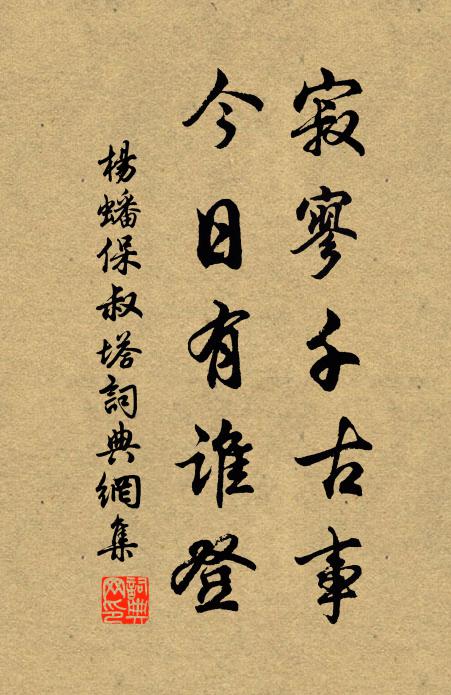 寂寥千古事
今日有誰登
楊蟠保叔塔詞典網集
詞典网印